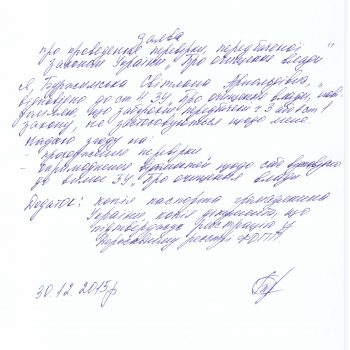 Заява
про проведення перевірки, передбаченої
Законом України „Про очищення влади"
Я, Світлана
відповідно до ст. 4 ЗУ „Про очищення влади", пові-
домляю, що заборони, передбачені ч. 3 або 4 ст. 1
Закону, не застосовуються щодо мене.
Надаю згоду на:
- проходження перевірки
- оприлюднення відомостей щодо себе відповідно
до вимог ЗУ „Про очищення влади"
Додаток: копія паспорта громадянина
України, копія документа, що
підтверджує реєстрацію у
Державному реєстрі ФОПП.
30.12.2015р.